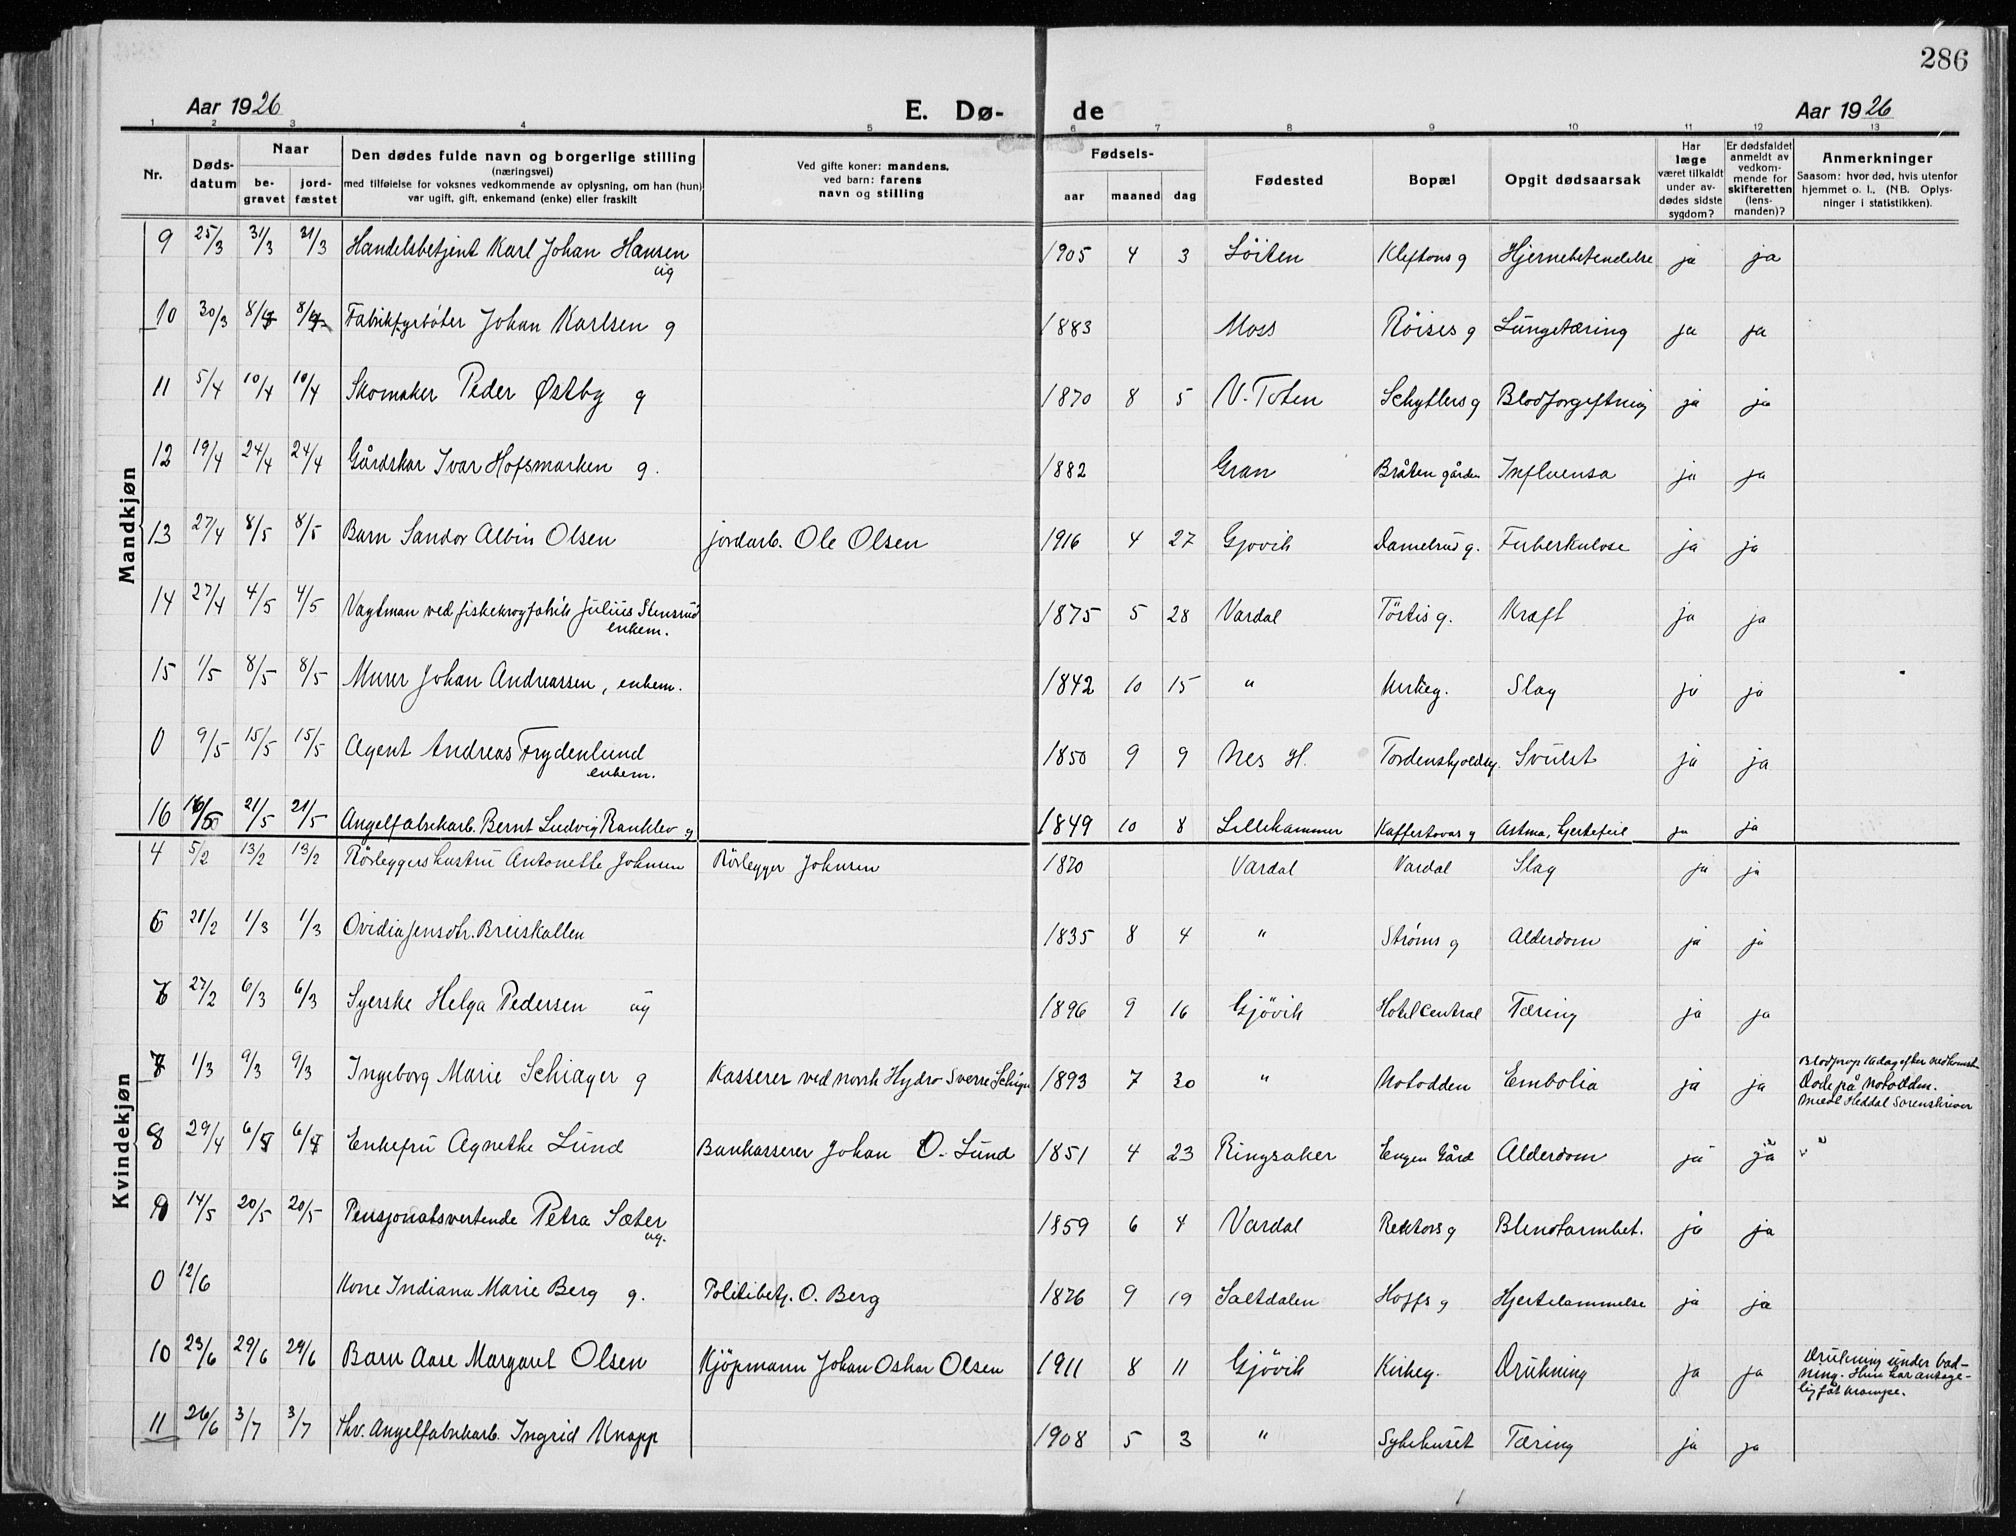 286
Aar 1926 E. Dø- de Aar 1926
1 2 3 4 5 6 7 8 9 10 11 12 13
Nr.
Døds-
datum
Naar
be-
gravet
jord-
fæstet
Den dødes fulde navn og borgerlige stilling
(næringsvei)
med tilføielse for voksnes vedkommende av oplysning, om han (hun)
var ugift, gift, enkemand (enke) eller fraskilt
Ved gifte koner: mandens,
ved barn: farens
navn og stilling
Fødsels-
aar maaned dag
Fødested
Bopæl
Opgit dødsaarsak
Har
læge
været tilkaldt
under av-
dødes sidste
sygdom?
Er dødsfaldet
anmeldt av
vedkom-
mende for
skifteretten
(lens-
manden)?
Anmerkninger
Saasom: hvor død, hvis utenfor
hjemmet o. l., (NB. Oplys-
ninger i statistikken).
Mandkjøn
9 25/3 31/3 31/3 Handelsbetjent Karl Johan Hansen ug 1905 4 3 Löiten Kleftons g Hjernebetendelse ja ja
10 30/3 8/4 8/4 Fabrikfyrbøter Johan Karlsen g 1883 Moss Röises g Lungetæring ja ja
11 5/4 10/4 10/4 Skomaker Peder Østby g 1870 8 5 V. Toten Schytlers g Blodforgiftning ja ja
12 19/4 24/4 24/4 Gårdskar Ivar Hofsmarken g. 1882 Gran Bråten gården Influensa ja ja
13 27/4 8/5 8/5 Barn Sandor Albin Olsen jordarb. Ole Olsen 1916 4 27 Gjøvik Damelrud g. Tuberkulose ja ja
14 27/4 4/5 4/5 Vagtman ved fiskekrogfabrik Julius Stensrud
enkem. 1875 5 28 Vardal Törtis g. Kræft ja ja
15 1/5 8/5 8/5 Murer Johan Andreassen, enkem. 1842 10 15 " Kirkeg. Slag ja ja
0 9/5 15/5 15/5 Agent Andreas Frydenlund
enkem. 1850 9 9 Nes H. Tordenskjoldsg. Svulst ja ja
16 16/5 21/5 21/5 Angelfabrikarb. Bernt Ludvig Ranklev g 1849 10 8 Lillehammer Kaffestovas g Astma, hjertefeil ja ja
Kvindekjøn
4 5/2 13/2 13/2 Rörleggershustru Antonette Johnsen Rörlegger Johnsen 1870 Vardal Vardal Slag ja ja
5 21/2 1/3 1/3 Ovidia Jensdtr. Breiskallen 1835 8 4 " Strøms g Alderdom ja ja
6 27/2 6/3 6/3 Syerske Helga Pedersen ug 1896 9 16 Gjövik Hotel Central Tæring ja ja
7 1/3 9/3 9/3 Ingeborg Marie Schiager g Kasserer ved norsk Hydro Sverre Schiager 1893 7 30 " Notodden Embolia ja ja
Døde på Notodden.
Heddal Sorenskriver
8 29/4 6/5 6/5 Enkefru Agnethe Lund Bankkasserer Johan O. Lund 1851 4 23 Ringsaker Engen Gård Alderdom ja ja "
9 14/5 20/5 20/5 Pensjonatsvertinde Petra Sæter
ug. 1859 6 4 Vardal Rektors g Blindtarmbet. ja ja
0 12/6 Kone Indiana Marie Berg g. Politibetj. O. Berg 1876 9 19 Saltdalen Hoffs g Hjertelammelse ja ja
10 23/6 29/6 29/6 Barn Aase Margaret Olsen Kjöpmann Johan Oskar Olsen 1911 8 11 Gjövik Kirkeg. Drukning ja ja
Drukning under bad-
ning. Hun har antage-
lig fåt krampe.
11 26/6 3/7 3/7 fhv. Angelfabrikarb. Ingrid Knapp 1908 5 3 " Sykehuset Tæring ja ja